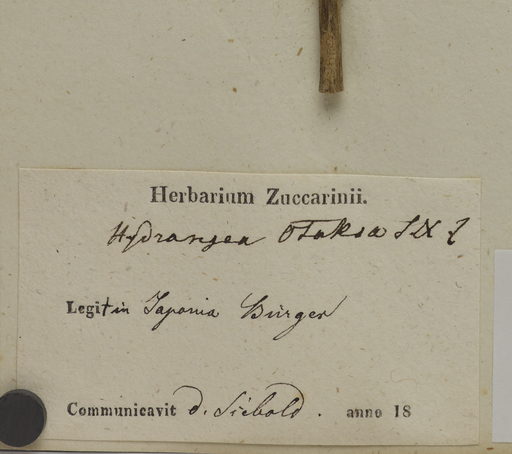 Herbarium Zuccarinii.
Hydrangea Otaksa S & Z
Legit in Japonia Bürger
Communicavit d. Siebold. anno 18